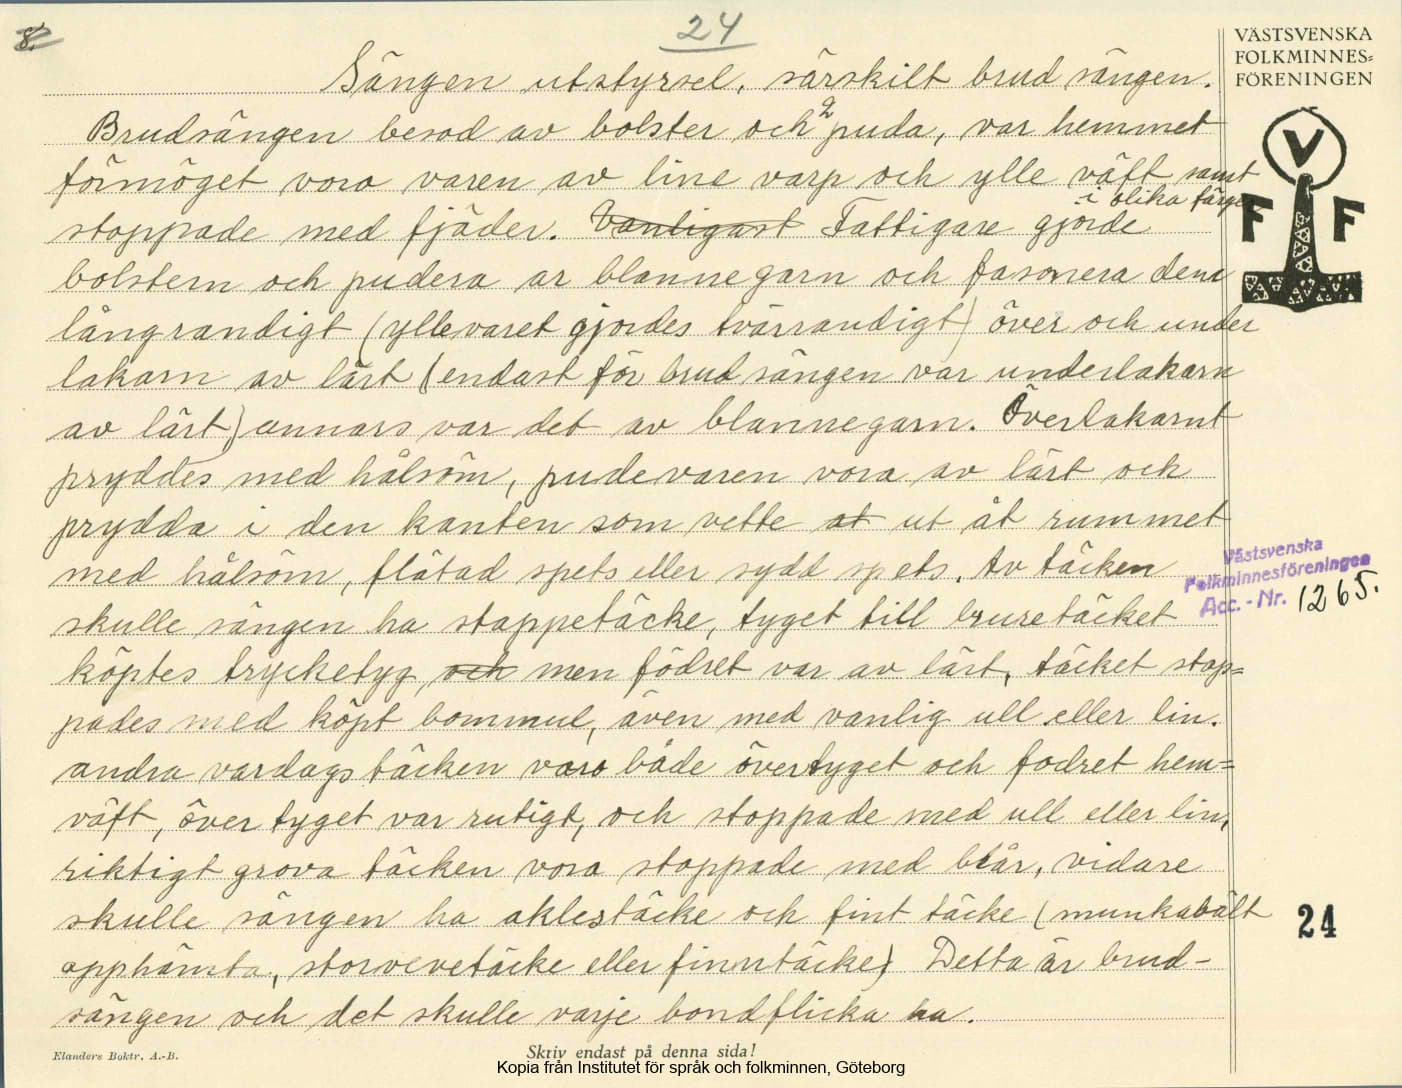 8.
24
VÄSTSVENSKA
FOLKMINNES=
FÖRENINGEN
Sängen utstyrsel, särskilt brud sängen.
Brudsängen besod av bolster och 2 puda, var hemmet
förmöget voro varen av line varp och ylle väft samt
i olika färger
stoppade med fjäder. Vanligast Fattigare gjorde
bolstern och pudera ar blannegarn och fasonera dem
långrandigt (yllevaret gjordes tvärrandigt) över och under
lakarn av lärt (endast för brud sängen var underlakarn
av lärt) annars var det av blannegarn. Överlakarnt
pryddes med hålsöm, pudevaren vora av lärt och
prydda i den kanten som vette at ut åt rummet
med hålsöm, flätad spets eller sydd spets. Av täcken
skulle sängen ha stoppetäcke, tyget till bruretäcket
köptes trycketyg och men födret var av lärt, täcket stop=
pades med köpt bommul, även med vanlig ull eller lin.
andra vardags täcken voro både övertyget och fodret hem=
väft, över tyget var rutigt, och stoppade med ull eller lin,
riktigt grova täcken vora stoppade med blår, vidare
skulle sängen ha aklestäcke och fint täcke (munkabält
opphämta, storvevetäcke eller finntäcke) Detta är brud-
sängen och det skulle varje bondflicka ha.
V
F F
Västsvenska
Folkminnesföreningen
Acc.-Nr. 1265.
24
Elanders Boktr. A.-B.
Skriv endast på denna sida!
Kopia från Institutet för språk och folkminnen, Göteborg